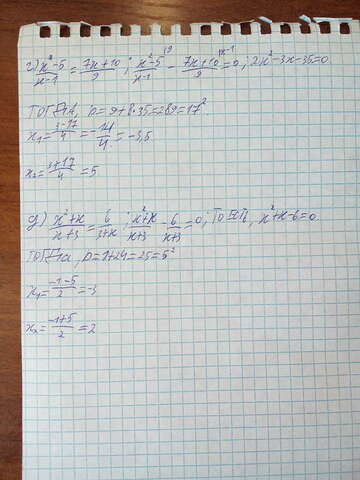 г) (x²-5)/(x-1) = (7x+10)/9 ; (x²-5)/(x-1) |9 - (7x+10)/9 |x-1 = 0 ; 2x²-3x-35=0
тогда, D=9+8·35=289=17²
x₁=(3-17)/4=-14/4=-3,5
x₂=(3+17)/4=5
д) (x²+x)/(x+3) = 6/(3+x) ; (x²+x)/(x+3) - 6/(x+3) = 0 ; то есть, x²+x-6=0
тогда, D=1+24=25=5²
x₁=(-1-5)/2=-3
x₂=(-1+5)/2=2